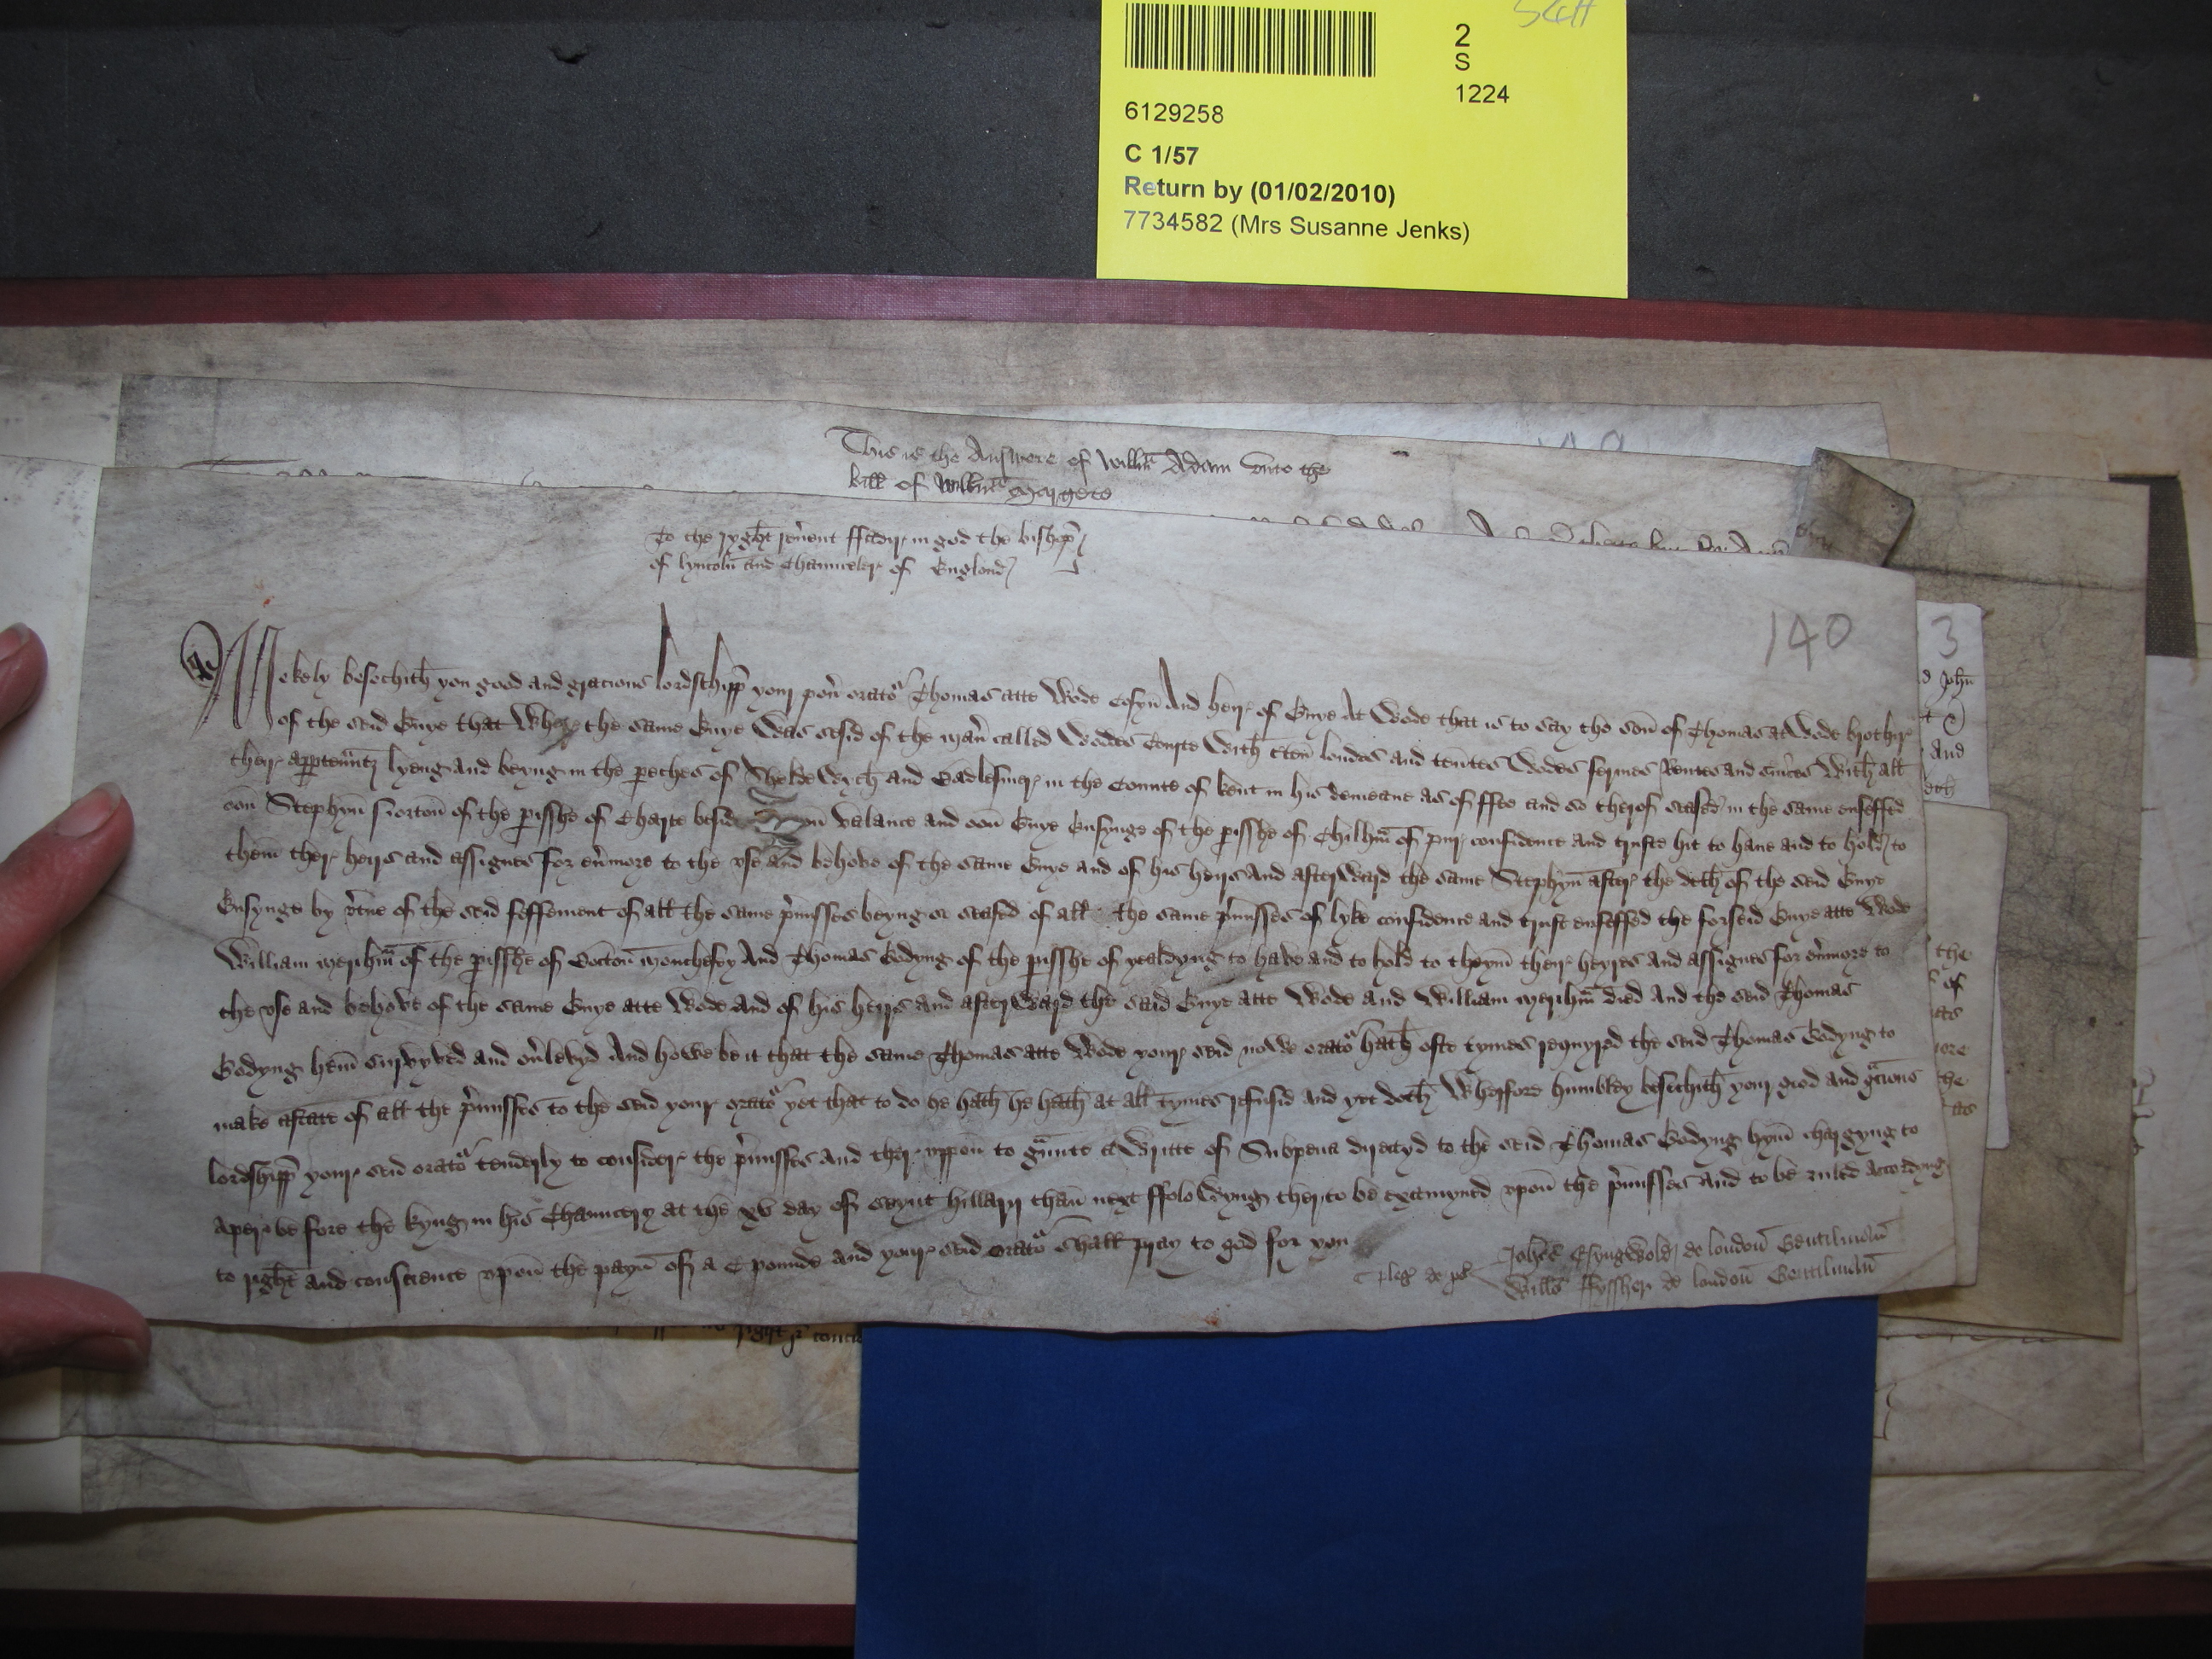 SCH
2
S
1224
6129258
C 1/57
Return by (01/02/2010)
7734582 (Mrs Susanne Jenks)
This is the Answere of Willm̄ Adam vnto the
bill of Willm̄
To the ryght reu'ent ffader in god the bisshop
of lyncoln̄ and Chaunceler of Englond
140
Mekely besechith you good and gracious lordschipp your pou' orato' Thomas atte Wode Cosyn̄ And heir of Guye At Wode that is to say the son̄ of Thomas at Wode brother
of the seid Guye that Where the same Guye Was sesid of the man' called Wodes Courte With c'ten̄ londes and ten̄tes Wodes fermes Rentes and s'uices With all
their app'ten̄ntz lyeng and beyng in the p'eches of Sheldewych and Badlesmer in the Counte of kent in his demeane as of ffee and so therof seased in the same enfeffed
oon̄ Stephyn̄ Norton̄ of the p'isshe of Charte beside valance and oon̄ Guye Ensynge of the p'isshe of Chilhm̄ of pur confidence and truste hit to haue and to hold to
them̄ ther heirs and assignes for eu'more to the vse and behove of the same Guye and of his heirs And afterward the same Stephyn̄ after the deth of the seid Guye
Ensynge by v'tue of the seid feffement of all the same p'misses beyng seased of all the same p'misses of lyke confidence and trust enfeffed the forseid Guye atte Wode
William merihm̄ of the p'isshe of Bocton̄ monchesey And Thomas Godyng of the p'isshe of yealdyng to have and to hold to theym̄ their heyres and assignes for eu'more to
the vse and behove of the same Guye atte Wode And of his heirs and afterward the said Guye atte Wode and William merihm̄ died And the seid Thomas
Godyng hem̄ survyved and ou'levyd And howe be it that the same Thomas atte Wode your seid nowe orato' hath ofte tymes requyred the seid Thomas Godyng to
make astate of all the p'misses to the seid your orato' yet that to do he hath he hath at all tymes refusid and yet doth Wherfore humbley besechith your good and g'cious
lordshipp your seid orato' tenderly to consider the p'misses And ther vppon̄ to g'unte a Writte of Subpena directyd to the seid Thomas Godyng hym̄ chargyng to
aper be fore the kyng in his Chauncery at the xv day of seynt hillary than̄ next ffolowyng ther to be examyned vpon̄ the p'misses And to be ruled accordyng
to right and conscience vpon̄ the payn̄ of a C pounde and your seid orato' shall pray to god for you
pleg' de p'
Joh'es Esyngwold de london̄ Gentilman̄
Will's ffyssher de london̄ Gentilman̄
3
d John̄
And
doth
the
of